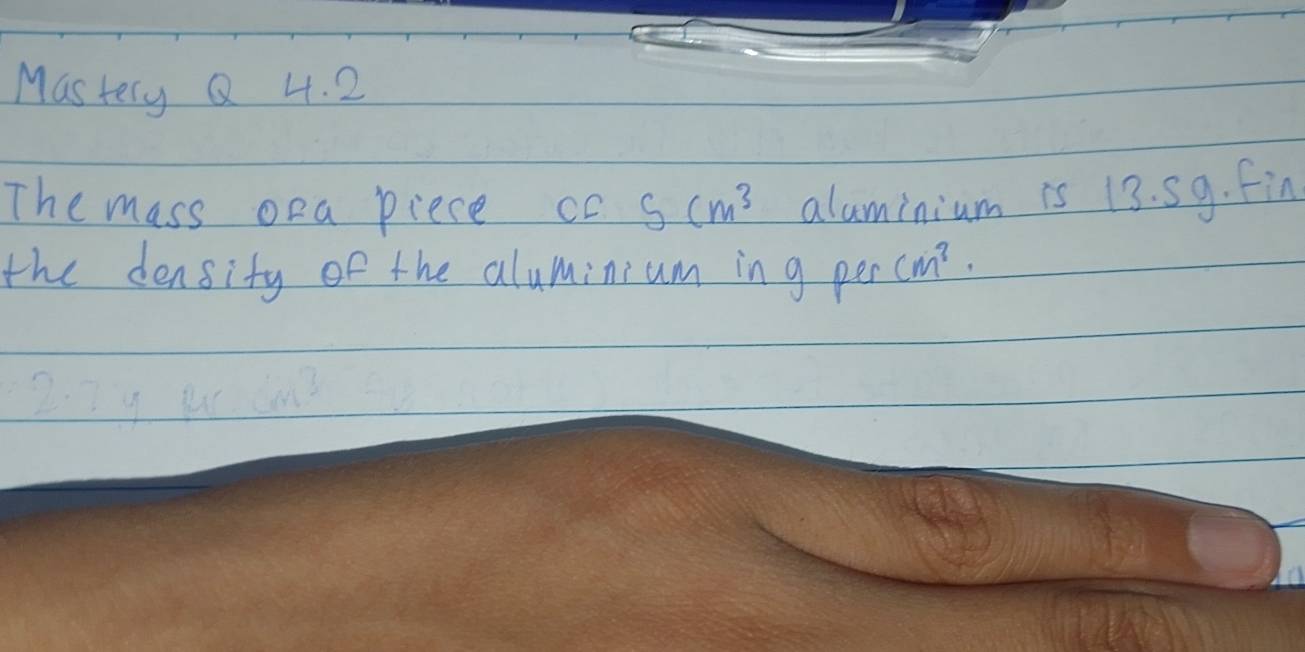 Mastery Q 4.2
The mass of a piece of 5 cm³ aluminium is 13.5g. Fin
the density of the aluminium in g per cm³.
2.7 g per cm³